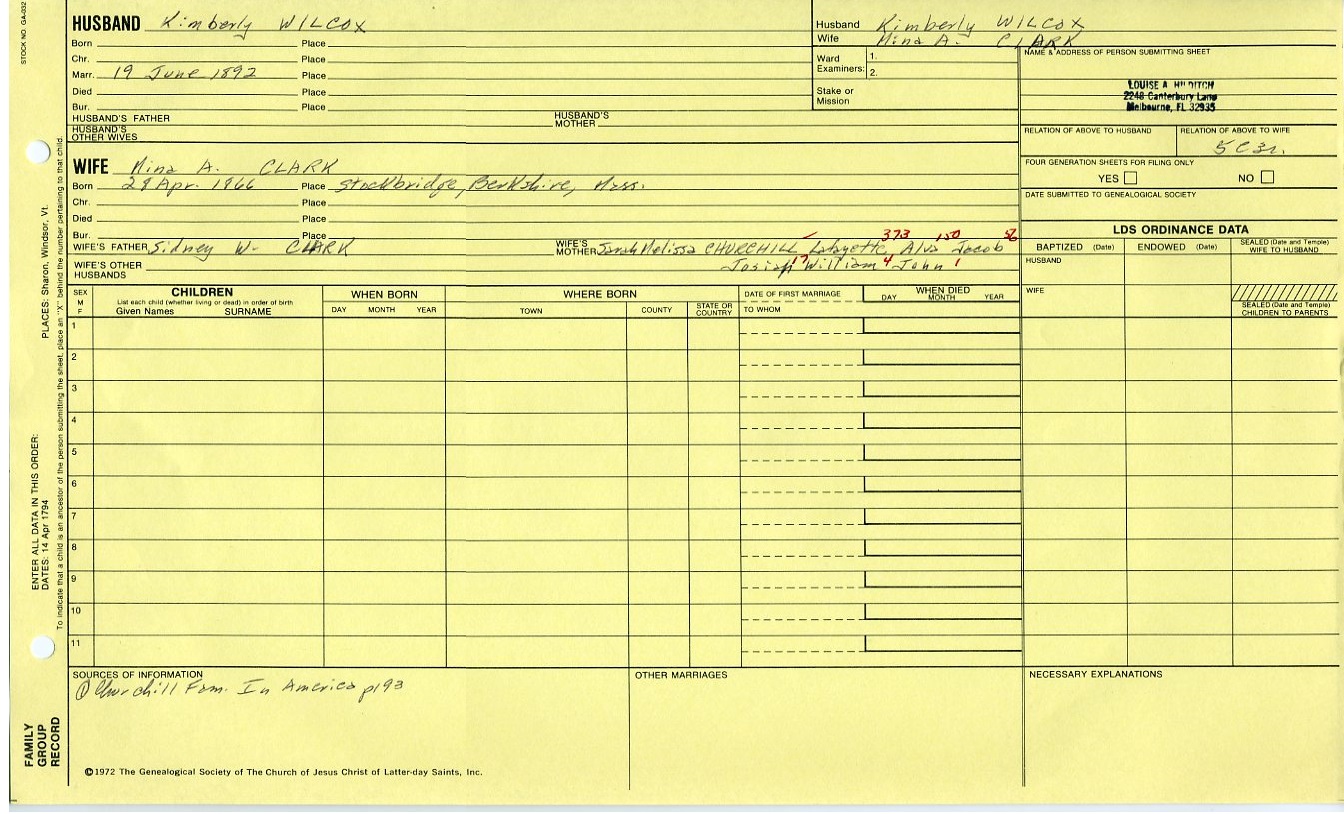 STOCK NO. GA-032
HUSBAND Kimberly WILCOX
Born Place
Chr. Place
Marr. 19 June 1892 Place
Died Place
Bur. Place
HUSBAND'S FATHER HUSBAND'S MOTHER
HUSBAND'S OTHER WIVES
Husband Kimberly WILCOX
Wife Mina A. CLARK
Ward Examiners: 1.
2.
Stake or Mission
NAME & ADDRESS OF PERSON SUBMITTING SHEET
LOUISE A. HILDITCH
2248 Canterbury Lane
Melbourne, FL 32935
RELATION OF ABOVE TO HUSBAND RELATION OF ABOVE TO WIFE
5C3r.
FOUR GENERATION SHEETS FOR FILING ONLY
YES NO
DATE SUBMITTED TO GENEALOGICAL SOCIETY
WIFE Mina A. CLARK
Born 29 Apr. 1866 Place Stockbridge, Berkshire, Mass.
Chr. Place
Died Place
Bur. Place
373 150 56
WIFE'S FATHER Sidney W. CLARK WIFE'S MOTHER Sarah Melissa CHURCHILL Lafayette, Alva Jacob
Josiah 17 William 4 John 1
WIFE'S OTHER HUSBANDS
LDS ORDINANCE DATA
BAPTIZED (Date) ENDOWED (Date) SEALED (Date and Temple) WIFE TO HUSBAND
HUSBAND
WIFE
SEALED (Date and Temple) CHILDREN TO PARENTS
SEX M F
CHILDREN
List each child (whether living or dead) in order of birth
Given Names SURNAME
WHEN BORN
DAY MONTH YEAR
WHERE BORN
TOWN COUNTY STATE OR COUNTRY
DATE OF FIRST MARRIAGE
TO WHOM
WHEN DIED
DAY MONTH YEAR
1
2
3
4
5
6
7
8
9
10
11
SOURCES OF INFORMATION
① Churchill Fam. In America p193
OTHER MARRIAGES
NECESSARY EXPLANATIONS
©1972 The Genealogical Society of The Church of Jesus Christ of Latter-day Saints, Inc.
FAMILY GROUP RECORD
ENTER ALL DATA IN THIS ORDER:
DATES: 14 Apr 1794
PLACES: Sharon, Windsor, Vt.
To indicate that a child is an ancestor of the person submitting the sheet, place an "X" behind the number pertaining to that child.